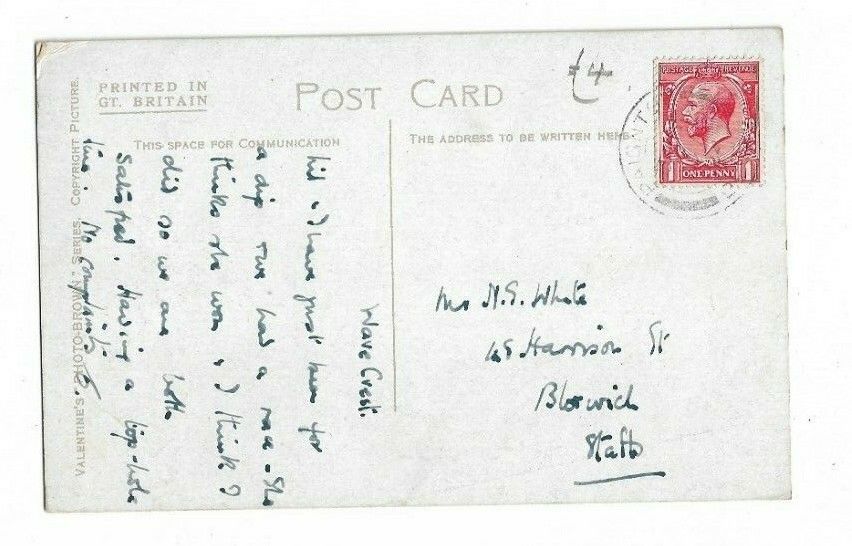 PRINTED IN
GT. BRITAIN
POST CARD
£4
POSTAGE REVENUE
ONE PENNY
1 1
PAIGNT
THIS SPACE FOR COMMUNICATION
THE ADDRESS TO BE WRITTEN HERE
VALENTINE'S "PHOTO-BROWN" SERIES. COPYRIGHT PICTURE.
Wave Crest.
& I have just been for
a dip & we had a race. She
thinks she won & I think I
did so we are both
satisfied. Having a top-hole
time. No complaints
N.S. White
48 Harrison St
Bloxwich
Staffs